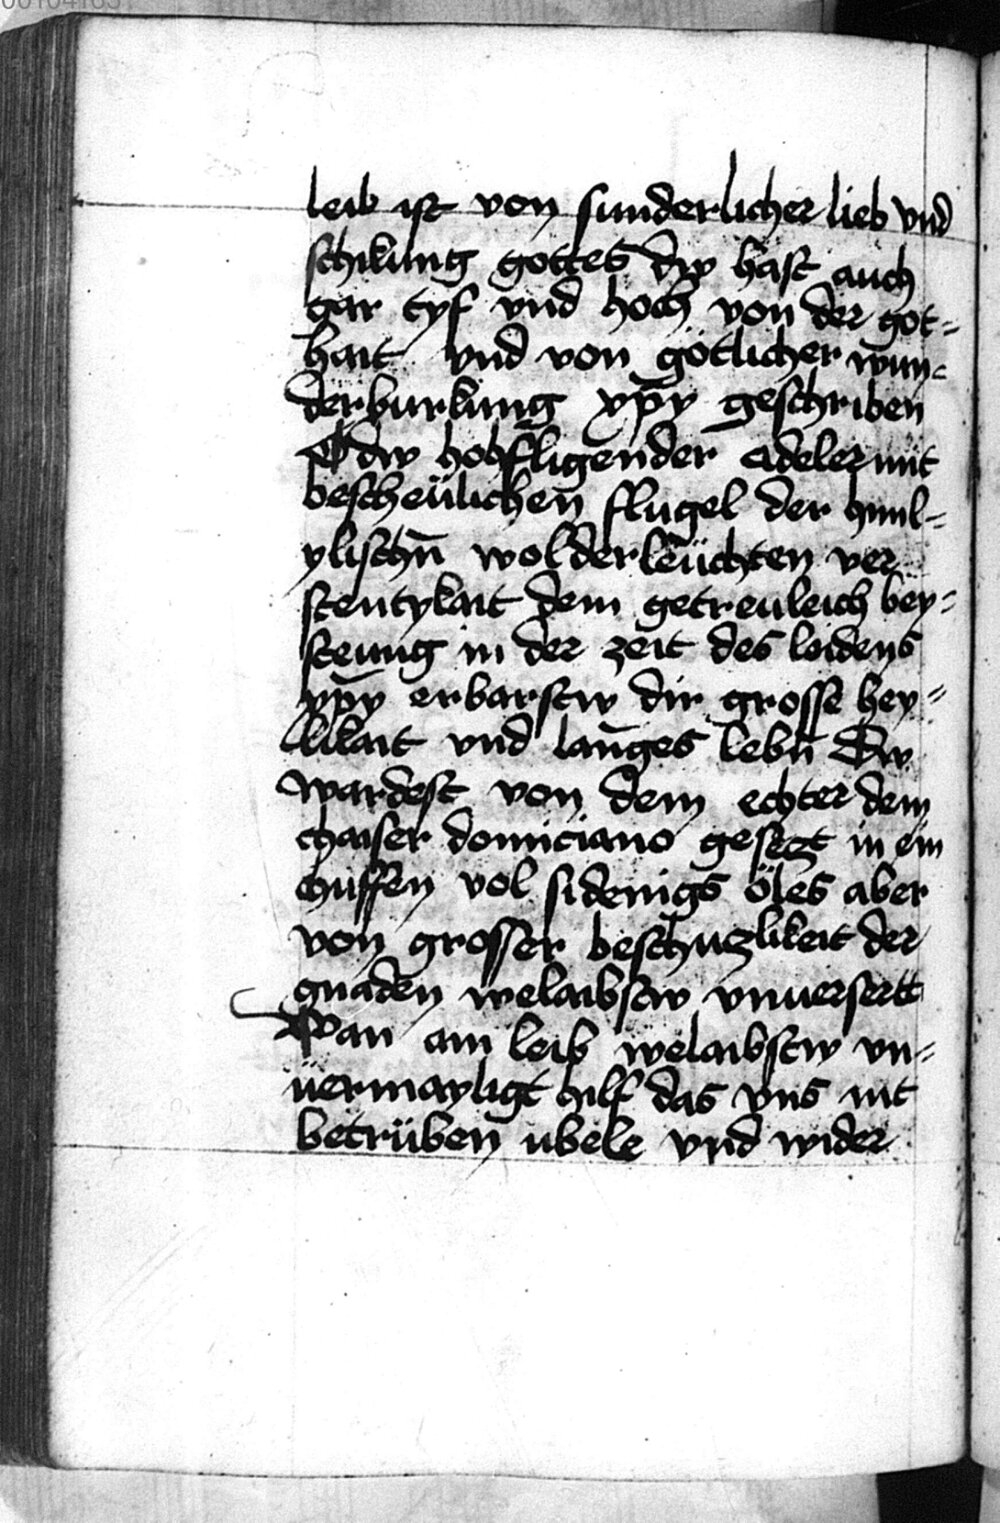 leib ist von sunderlicher lieb vnd
schikung gottes dw hast auch
gar tyf vnd hoch von der got-
hait vnd von gotlicher wun-
derburkung xp̄y geschriben
O dw hohfligender adeler mit
bescheülichen flugel der himl-
ylischn̄ wolderleüchten ver
stentykait dem getreuleich bey-
steung in der zeit des leidens
xp̄y erbarstw dir grosse hey-
likait vnd langes lebn̄ Dw
wardest von dem echter dem
chaiser domiciano gesezt in ein
chuffen vol sidenigs öles aber
von grosser beschuzlikeit der
gnaden welaibstw vnuersertt
Wan am leib welaibstw vn-
uermayligt hilf das vns nit
betrüben ubele vnd wider